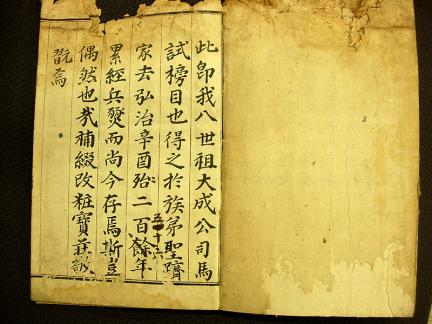 此卽我八世祖大成公司馬
試榜目也得之於族弟聖躋
家去弘治辛酉殆二百餘年
五十六
累經兵燹而尚今存焉斯豈
偶然也哉補綴改粧寶莊誠
翫焉